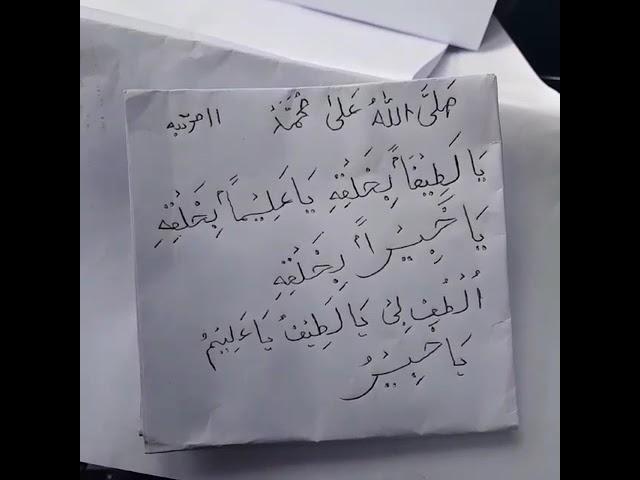 صَلَّى اللّٰهُ عَلىٰ مُحَمَّدْ ۱۱ مرتبه
يَا لَطِيْفَاً بِخَلْقِهِ يَا عَلِيْماً بِخَلْقِهِ
يَا خَبِيْراً بِخَلْقِهِ
اُلْطُفْ لِيْ يَا لَطِيْفُ يَا عَلِيْمُ
يَا خَبِيْرُ